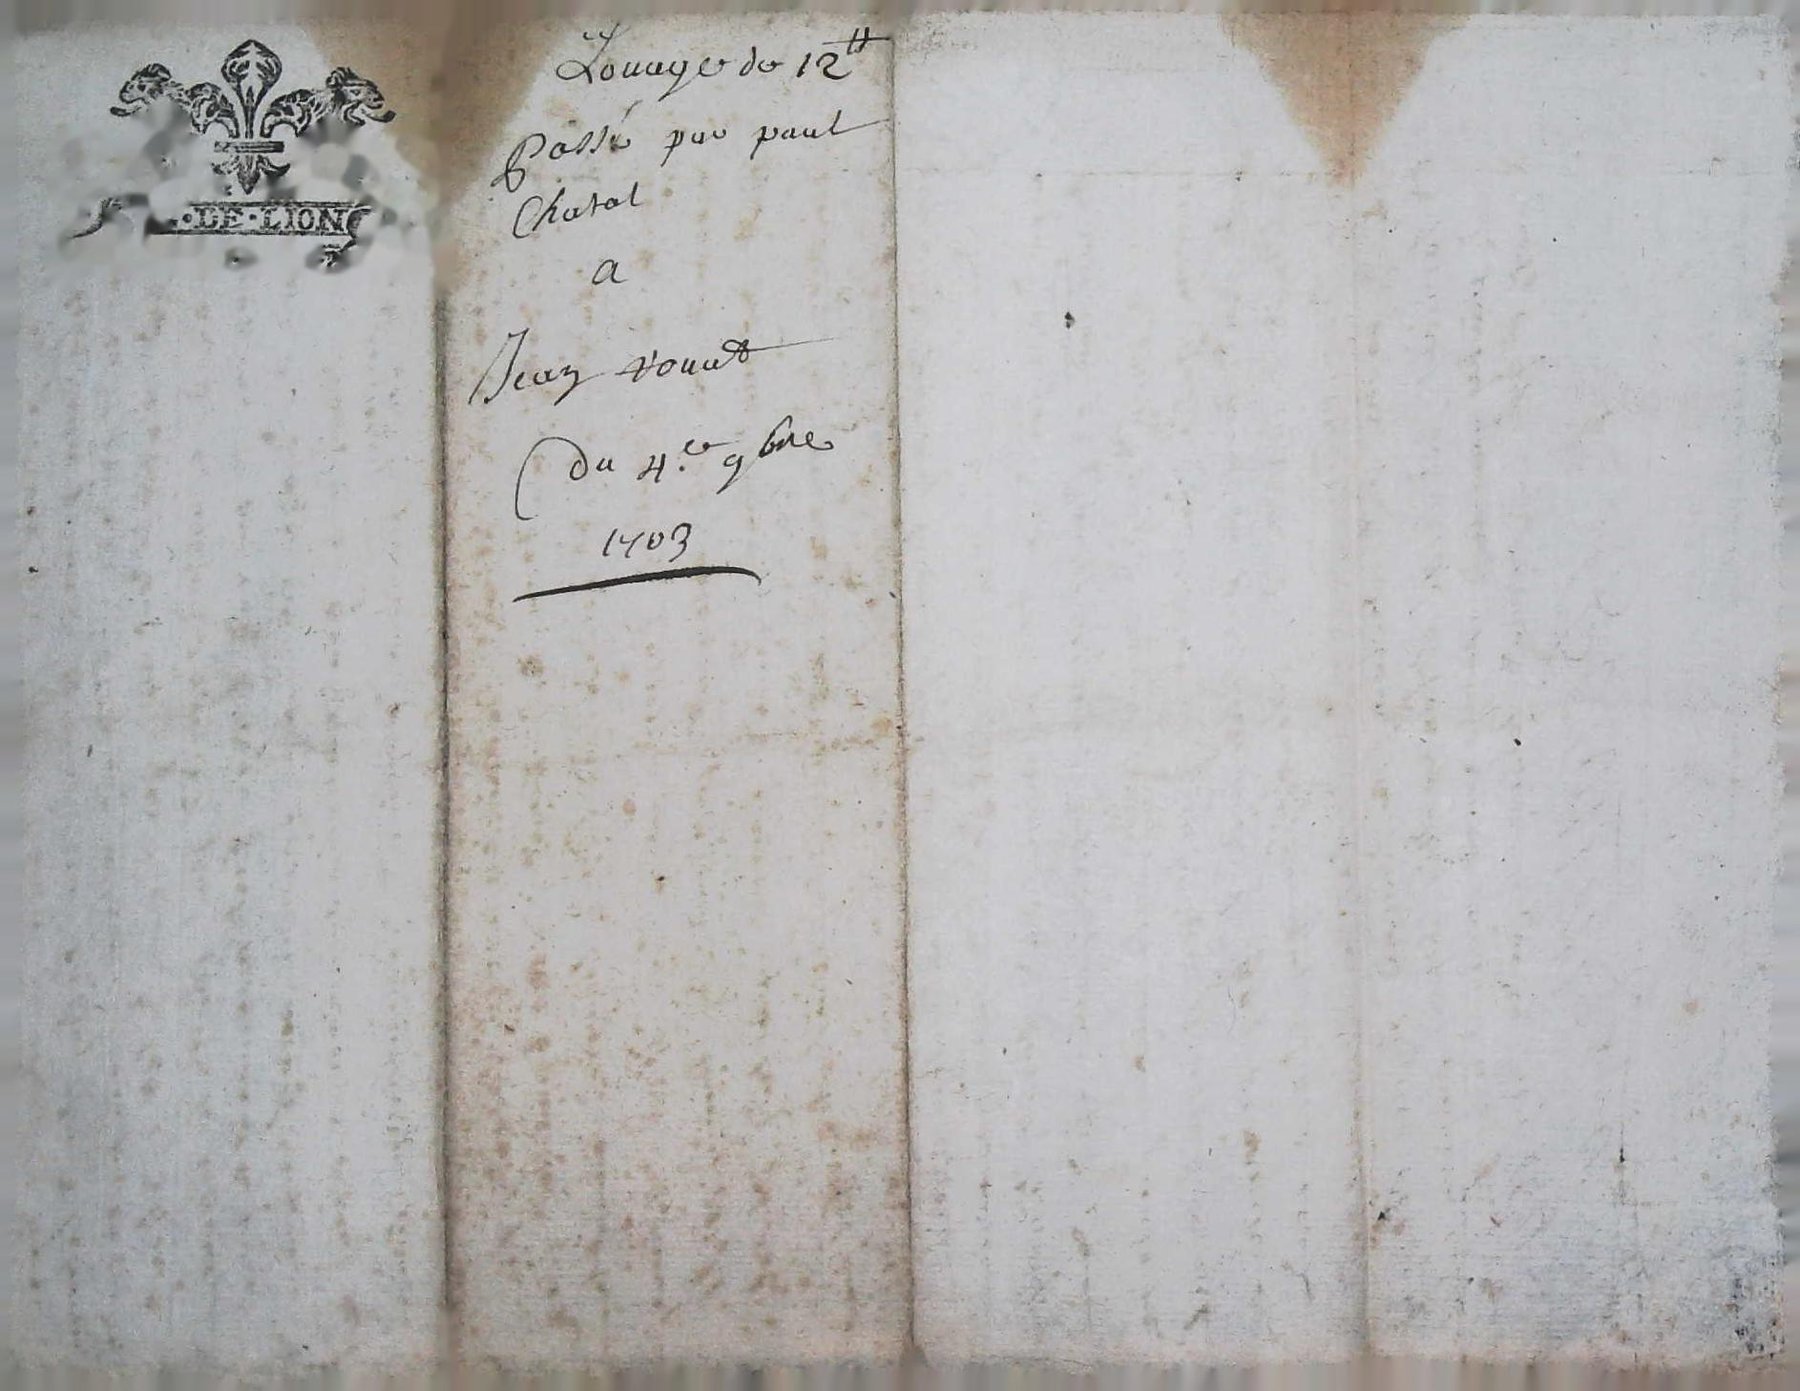 ·DE·LION
Louage de 12ᵗᵗ
Passé par paul
Chatal
a
Jean
du 4.e 9bre
1703